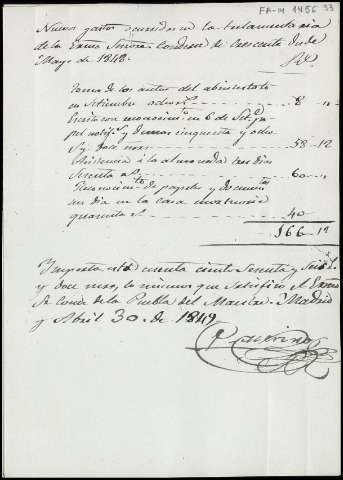 FA-M 1456 33
Nuevos gastos ocurridos en la testamentaria
de la Exma Señora Condesa de
Mayo de 1848.
Toma de los autos del abintestato
en Setiembre 8 "
Escrito con en 6 de Set.
pel notif. y demas cinquenta y ocho
y doce mrs 58 .. 12
Asistencia á la almoneda tres dias
sesenta 60 "
Reconocim.to de papeles y docum.tos
un dia en la casa mortuoria
quarenta 40
166 12
Ymporta esta cuenta ciento sesenta y seis
y doce mrs, los mismos que satisfizo el Exmo
Sr Conde de la Puebla del Maestre. Madrid
y Abril 30. de 1849.